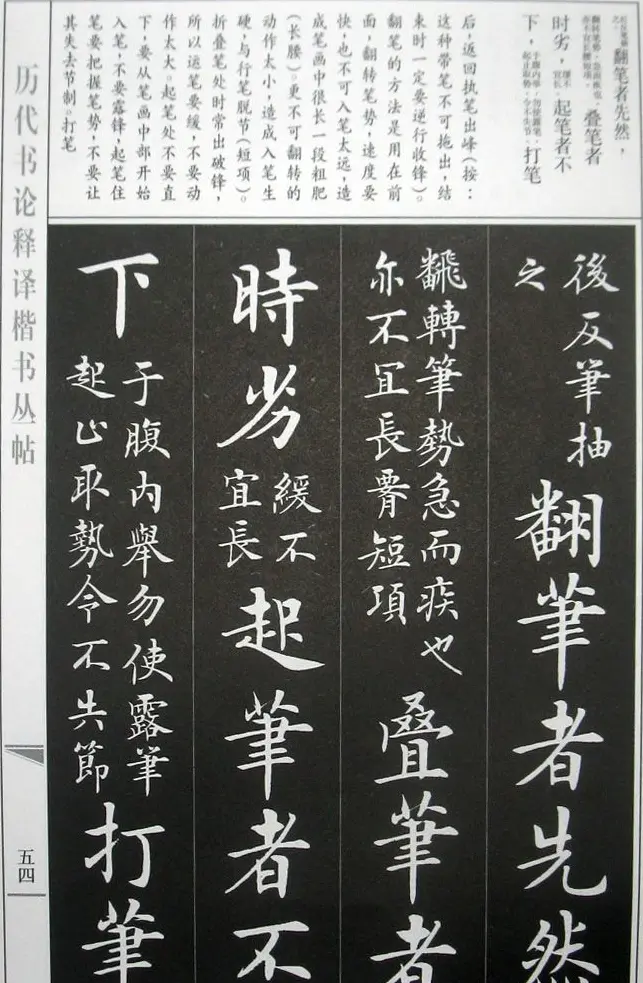 翻笔者先然，
翻转笔势，急而疾也，
亦不宜长腰短项。
叠笔者
时劣，
缓不
宜长。
起笔者不
下，
于腹内举，勿使露笔，
起止取势，令不失节。
打笔
后，返回执笔出峰（按：
这种带笔不可拖出，结
束时一定要逆行收锋）。
翻笔的方法是用在前
面，翻转笔势，速度要
快，也不可入笔太远，造
成笔画中很长一段粗肥
（长腰）。更不可翻转的
动作太小，造成入笔生
硬，与行笔脱节（短项）。
折叠笔处时常出破锋，
所以运笔要缓，不要动
作太大。起笔处不要直
下，要从笔画中部开始
入笔，不要露锋，起笔住
笔要把握笔势，不要让
其失去节制。打笔
後反筆抽
之
翻筆者先然
翻轉筆勢急而疾也
亦不宜長腰短項
叠筆者
時劣
緩不
宜長
起筆者不
下
于腹内舉勿使露筆
起止取勢令不失節
打筆
历代书论释译楷书丛帖
五四